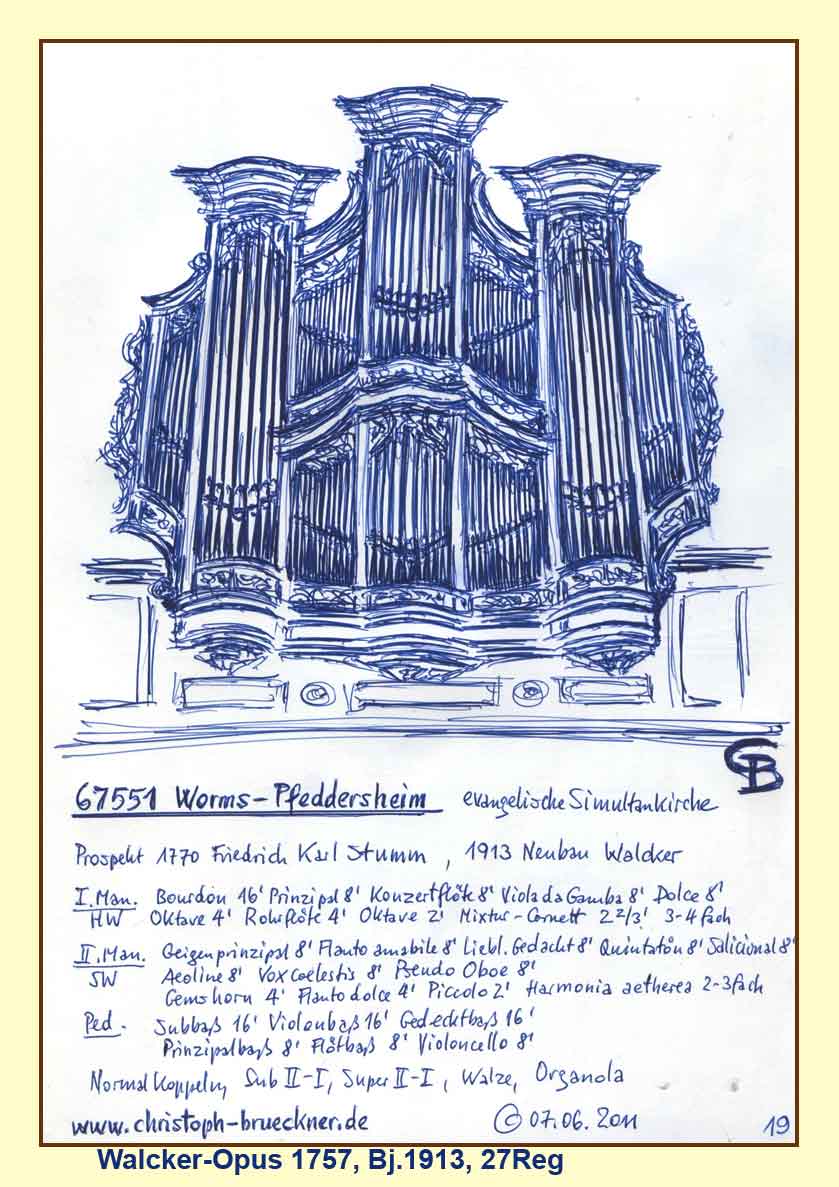 CB
67551 Worms-Pfeddersheim evangelische Simultankirche
Prospekt 1770 Friedrich Karl Stumm, 1913 Neubau Walcker
I. Man. Bourdon 16' Prinzipal 8' Konzertflöte 8' Viola da Gamba 8' Dolce 8'
HW Oktave 4' Rohrflöte 4' Oktave 2' Mixtur-Cornett 2 2/3' 3-4fach
II. Man. Geigenprinzipal 8' Flauto amabile 8' Liebl. Gedackt 8' Quintatön 8' Salicional 8'
SW Aeoline 8' Vox coelestis 8' Pseudo Oboe 8'
Gemshorn 4' Flauto dolce 4' Piccolo 2' Harmonia aetherea 2-3fach
Ped. Subbaß 16' Violonbaß 16' Gedecktbaß 16'
Prinzipalbaß 8' Flötbaß 8' Violoncello 8'
Normalkoppeln, Sub II-I, Super II-I, Walze, Organola
www.christoph-brueckner.de © 07.06.2011 19
Walcker-Opus 1757, Bj.1913, 27Reg